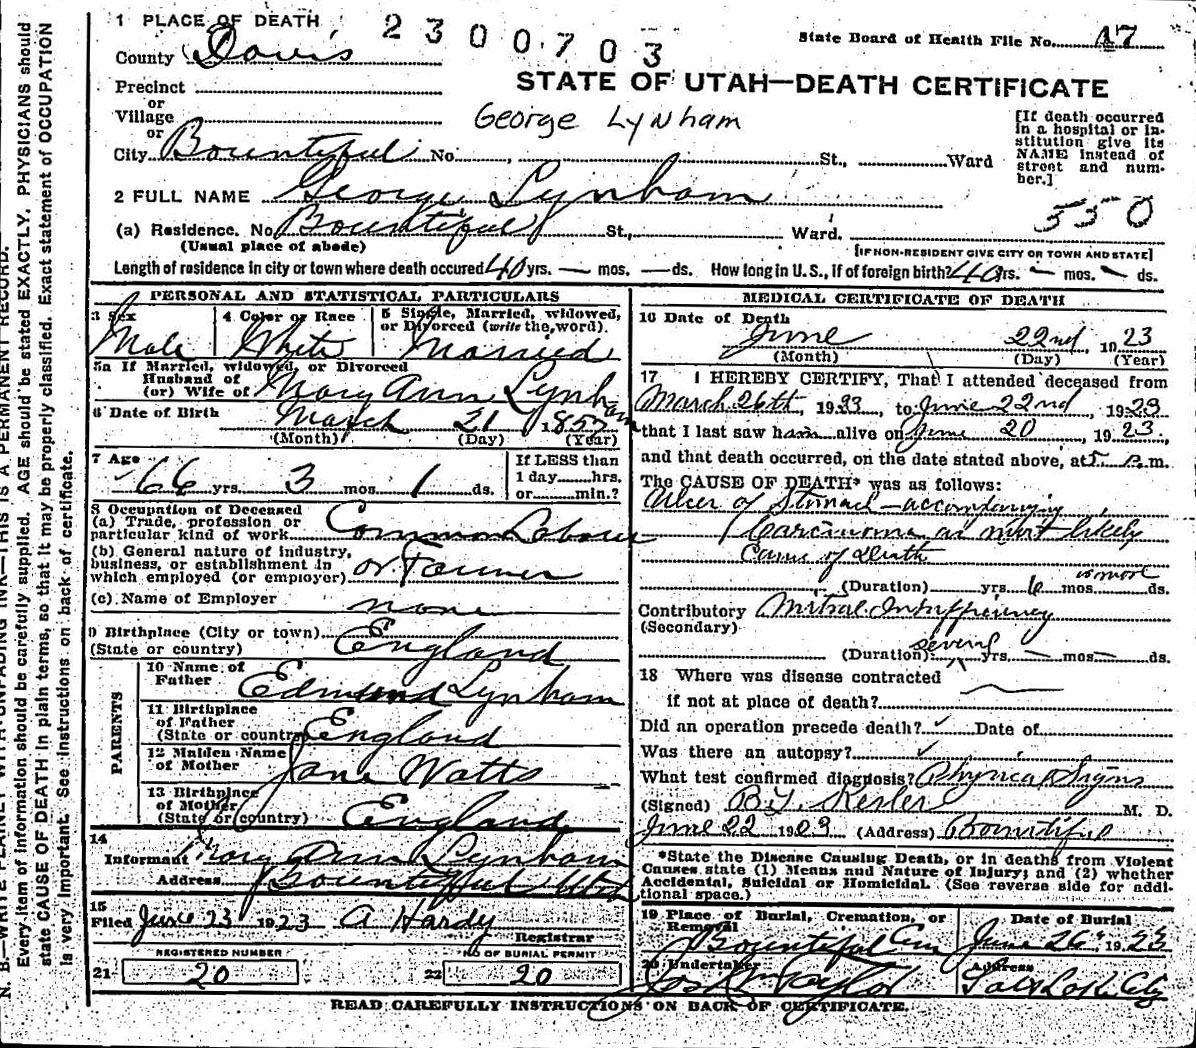 N. B.—WRITE PLAINLY WITH UNFADING INK—THIS IS A PERMANENT RECORD.
Every item of information should be carefully supplied. AGE should be stated EXACTLY. PHYSICIANS should
state CAUSE OF DEATH in plain terms, so that it may be properly classified. Exact statement of OCCUPATION
is very important. See instructions on back of certificate.
1 PLACE OF DEATH 2300703 State Board of Health File No. 47
County Davis
STATE OF UTAH—DEATH CERTIFICATE
Precinct
or
Village
or
George Lynham
City Bountiful No. , St., Ward
[If death occurred in a hospital or institution give its NAME instead of street and number.]
2 FULL NAME George Lynham
550
(a) Residence. No. Bountiful St., Ward.
(Usual place of abode) [IF NON-RESIDENT GIVE CITY OR TOWN AND STATE]
Length of residence in city or town where death occured 40 yrs. — mos. — ds. How long in U.S., if of foreign birth? 40 yrs. — mos. — ds.
PERSONAL AND STATISTICAL PARTICULARS
3 Sex 4 Color or Race 5 Single, Married, widowed, or Divorced (write the word).
Male White Married
5a If Married, widowed, or Divorced
Husband of
(or) Wife of Mary Ann Lynham
6 Date of Birth March 21 1857
(Month) (Day) (Year)
7 Age 66 yrs. 3 mos. 1 ds. If LESS than 1 day......hrs. or......min.?
8 Occupation of Deceased
(a) Trade, profession or
particular kind of work Common Laborer
(b) General nature of industry,
business, or establishment in
which employed (or employer) or Farmer
(c) Name of Employer none
9 Birthplace (City or town)
(State or country) England
PARENTS
10 Name of
Father Edmund Lynham
11 Birthplace
of Father
(State or country) England
12 Maiden Name
of Mother Jane Watts
13 Birthplace
of Mother
(State or country) England
14
Informant Mary Ann Lynham
Address Bountiful Utah
15
Filed June 23 1923 A Hardy
Registrar
REGISTERED NUMBER NO OF BURIAL PERMIT
21 20 22 20
MEDICAL CERTIFICATE OF DEATH
16 Date of Death
June 22nd, 1923
(Month) (Day) (Year)
17 I HEREBY CERTIFY, That I attended deceased from
March 26th, 1923, to June 22nd, 1923
that I last saw him alive on June 20, 1923.
and that death occurred, on the date stated above, at 5 m.
The CAUSE OF DEATH* was as follows:
Ulcer of Stomach—accompanying
Carcinoma as most likely
Cause of Death
or more
(Duration) yrs. 6 mos. ds.
Contributory Mitral Insufficiency
(Secondary)
several
(Duration) yrs. — mos. — ds.
18 Where was disease contracted
if not at place of death?
Did an operation precede death? Date of
Was there an autopsy?
What test confirmed diagnosis? Physical Signs
(Signed) Kesler M. D.
June 22 1923 (Address) Bountiful
*State the Disease Causing Death, or in deaths from Violent
Causes, state (1) Means and Nature of Injury; and (2) whether
Accidental, Suicidal or Homicidal. (See reverse side for additional space.)
19 Place of Burial, Cremation, or Removal Date of Burial
Bountiful Cem June 26, 1923
20 Undertaker Address
Taylor Salt Lake City
READ CAREFULLY INSTRUCTIONS ON BACK OF CERTIFICATE.